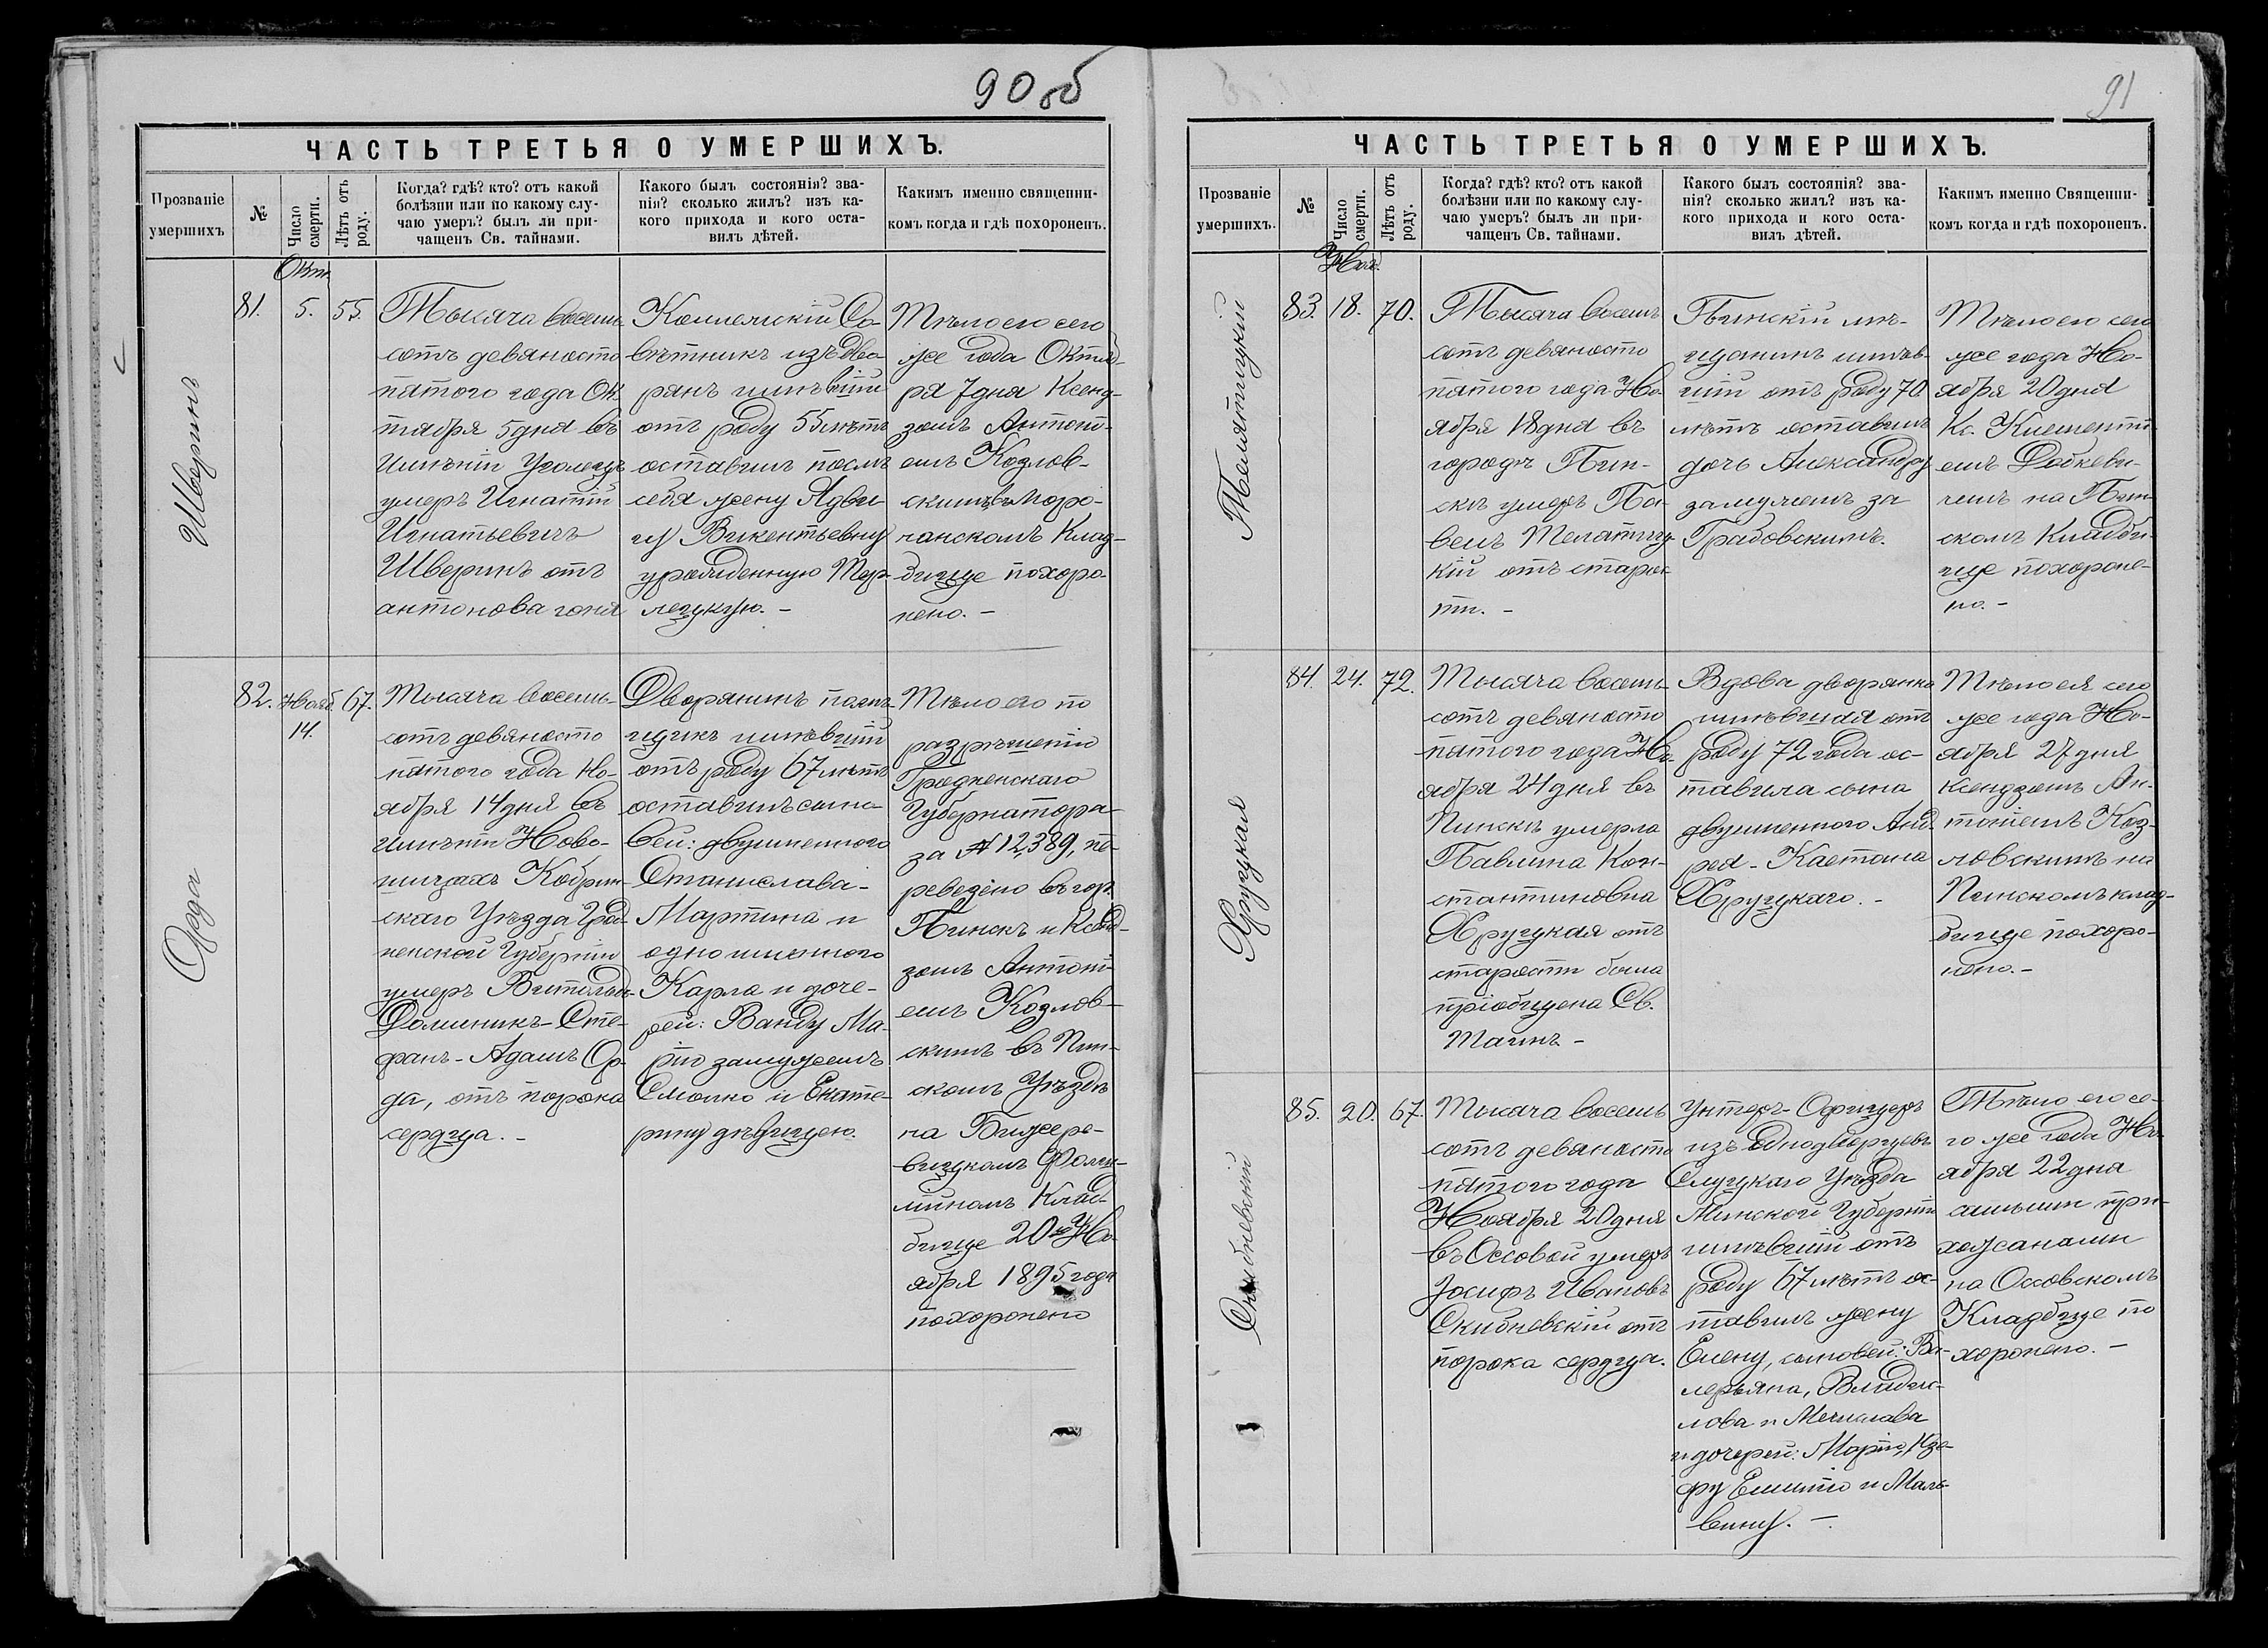 90 об
ЧАСТЬ ТРЕТЬЯ О УМЕРШИХЪ.
Прозваніе
умершихъ
№
Число
смерти.
Лѣтъ отъ
роду.
Когда? гдѣ? кто? отъ какой
болѣзни или по какому слу-
чаю умеръ? былъ ли при-
чащенъ Св. тайнами.
Какого былъ состоянія? зва-
нія? сколько жилъ? изъ ка-
кого прихода и кого оста-
вилъ дѣтей.
Какимъ именно священни-
комъ когда и гдѣ похороненъ.
Шверинъ
81.
Окт.
5.
55.
Тысяча восемь-
сотъ девяносто
пятого года Ок-
тября 5 дня въ
имѣніи
умеръ Игнатій
Игнатьевичъ
Шверинъ отъ
антонова гоня
Коллежскій Со-
вѣтникъ изъ дво-
рянъ имѣвшій
отъ роду 55 лѣтъ
оставилъ послѣ
себя жену Ядви-
гу Викентьевну
урожденную Тер-
лецкую. -
Тѣло его сего
же года Октяб-
ря 7 дня Ксенд-
зомъ Антоні-
емъ Козлов-
скимъ въ Моро-
чанскомъ Клад-
бище похоро-
нено. -
Орда
82.
Нояб.
14.
67.
Тысяча восемь-
сотъ девяносто
пятого года Но-
ября 14 дня въ
имѣніи Ново-
шицахъ Кобрин-
скаго Уѣзда Грод-
ненской Губерніи
умеръ Витольдъ-
Доминикъ-Сте-
фанъ-Адамъ Ор-
да, отъ порока
сердца. -
Дворянинъ помѣ-
щикъ имѣвшій
отъ роду 67 лѣтъ
оставилъ сыно-
вей: двуименного
Станислава-
Мартина и
одноименного
Карла и доче-
рей: Ванду Ма-
рію замужемъ
Смолко и Екате-
рину дѣвицею.
Тѣло его по
разрѣшенію
Гродненскаго
Губернатора
за № 12,389, пе-
ревезено въ гор.
Пинскъ и Ксенд-
зомъ Антоні-
емъ Козлов-
скимъ въ Пин-
скомъ Уѣздѣ
на Бижере-
вицкомъ Фами-
лійномъ Клад-
бище 20го Но-
ября 1895 года
похоронено
91
ЧАСТЬ ТРЕТЬЯ О УМЕРШИХЪ.
Прозваніе
умершихъ.
№
Число
смерти.
Лѣтъ отъ
роду.
Когда? гдѣ? кто? отъ какой
болѣзни или по какому слу-
чаю умеръ? былъ ли при-
чащенъ Св. тайнами.
Какого былъ состоянія? зва-
нія? сколько жилъ? изъ ка-
кого прихода и кого оста-
вилъ дѣтей.
Какимъ именно Священни-
комъ когда и гдѣ похороненъ.
Телятицкій
83.
Нояб.
18.
70.
Тысяча восемь
сотъ девяносто
пятого года Но-
ября 18 дня въ
городѣ Пин-
скѣ умеръ Па-
велъ Телятиц-
кій отъ старос-
ти. -
Пинскій мѣ-
щанинъ имѣв-
шій отъ роду 70
лѣтъ оставилъ
дочь Александру
замужемъ за
Грабовскимъ.
Тѣло его сего
же года Но-
ября 20 дня
Кс. Клементі-
емъ Добкеви-
чемъ на Пин-
скомъ Кладби-
ще похороне-
но. -
Хруцкая
84.
24.
72.
Тысяча восемь-
сотъ девяносто
пятого года Но-
ября 24 дня въ
Пинскѣ умерла
Павлина Кон-
стантиновна
Хруцкая отъ
старости была
пріобщена Св.
Таинъ -
Вдова дворянка
имѣвшая отъ
роду 72 года ос-
тавила сына
двуименного Анд-
рея-Каетана
Хруцкаго. -
Тѣло ея сего
же года Но-
ября 27 дня
Ксендзомъ Ан-
тоніемъ Коз-
ловскимъ на
Пинскомъ клад-
бище похоро-
нено. -
Скибневскій
85.
20.
67.
Тысяча восемь
сотъ девяносто
пятого года
Ноября 20 дня
въ Оссовой умеръ
Іосифъ Ивановъ
Скибневскій отъ
порока сердца.
Унтеръ-Офицеръ
изъ однодворцевъ
Слуцкаго Уѣзда
Минской Губерніи
имѣвшій отъ
роду 67 лѣтъ ос-
тавилъ жену
Елену, сыновей: Ва-
лерьяна, Влади-
лова и Мечислава
и дочерей: Марію, Юзе-
фу Емилію и Маль-
вину. -
Тѣло его се-
го же года Но-
ября 22 дня
самыми при-
хожанами
на Оссовскомъ
Кладбище по
хоронено. -